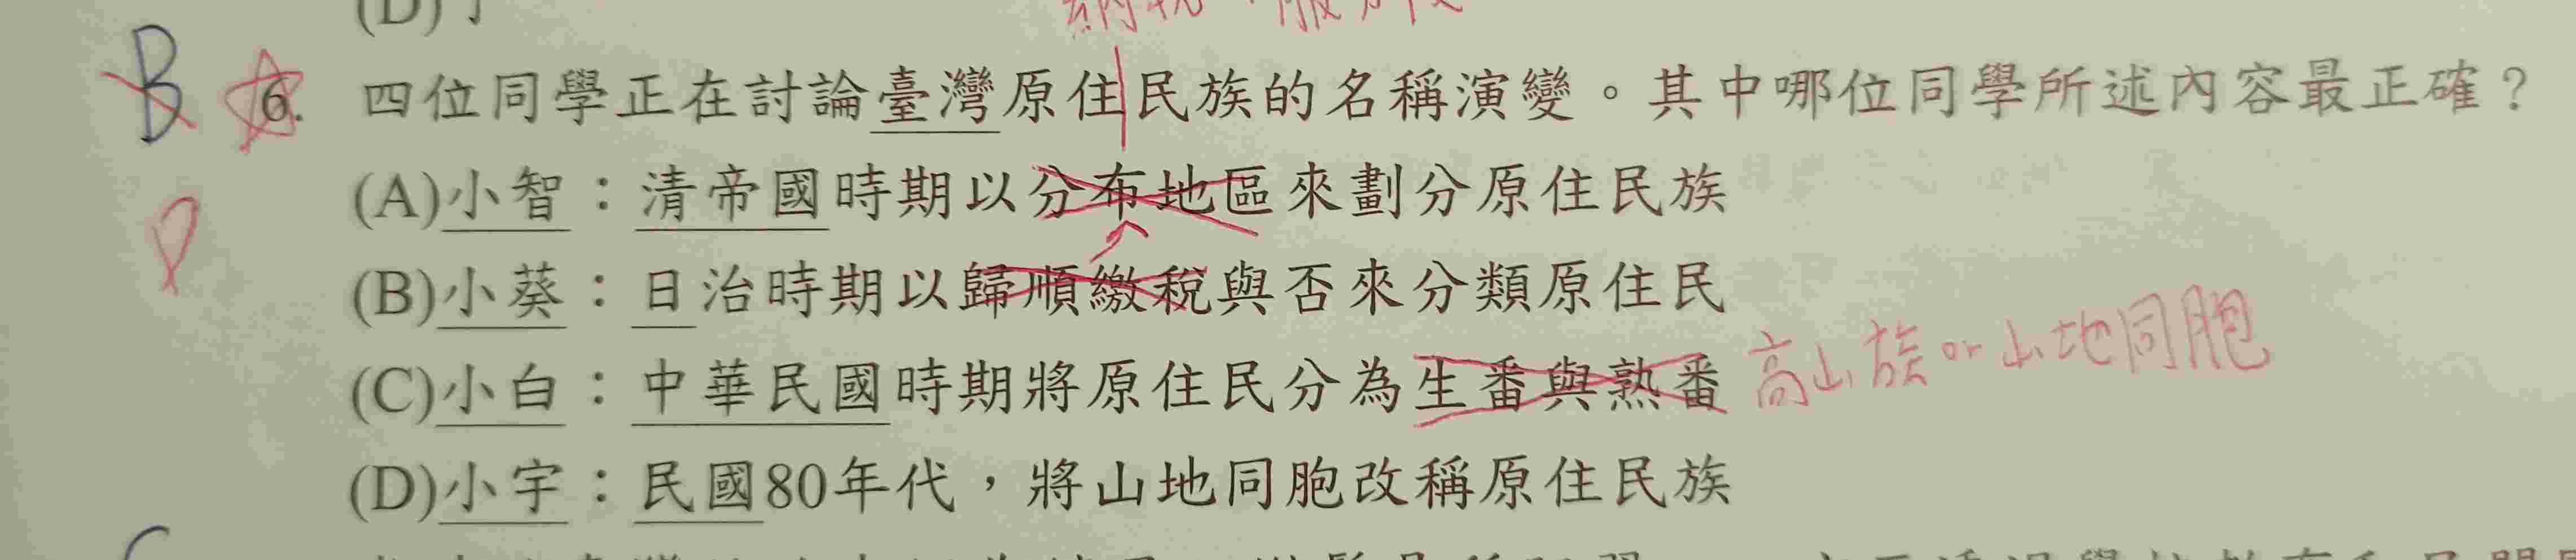 (D)
B 6. 四位同學正在討論臺灣原住民族的名稱演變。其中哪位同學所述內容最正確？
(A)小智：清帝國時期以分布地區來劃分原住民族
(B)小葵：日治時期以歸順繳稅與否來分類原住民
(C)小白：中華民國時期將原住民分為生番與熟番 高山族or山地同胞
(D)小宇：民國80年代，將山地同胞改稱原住民族